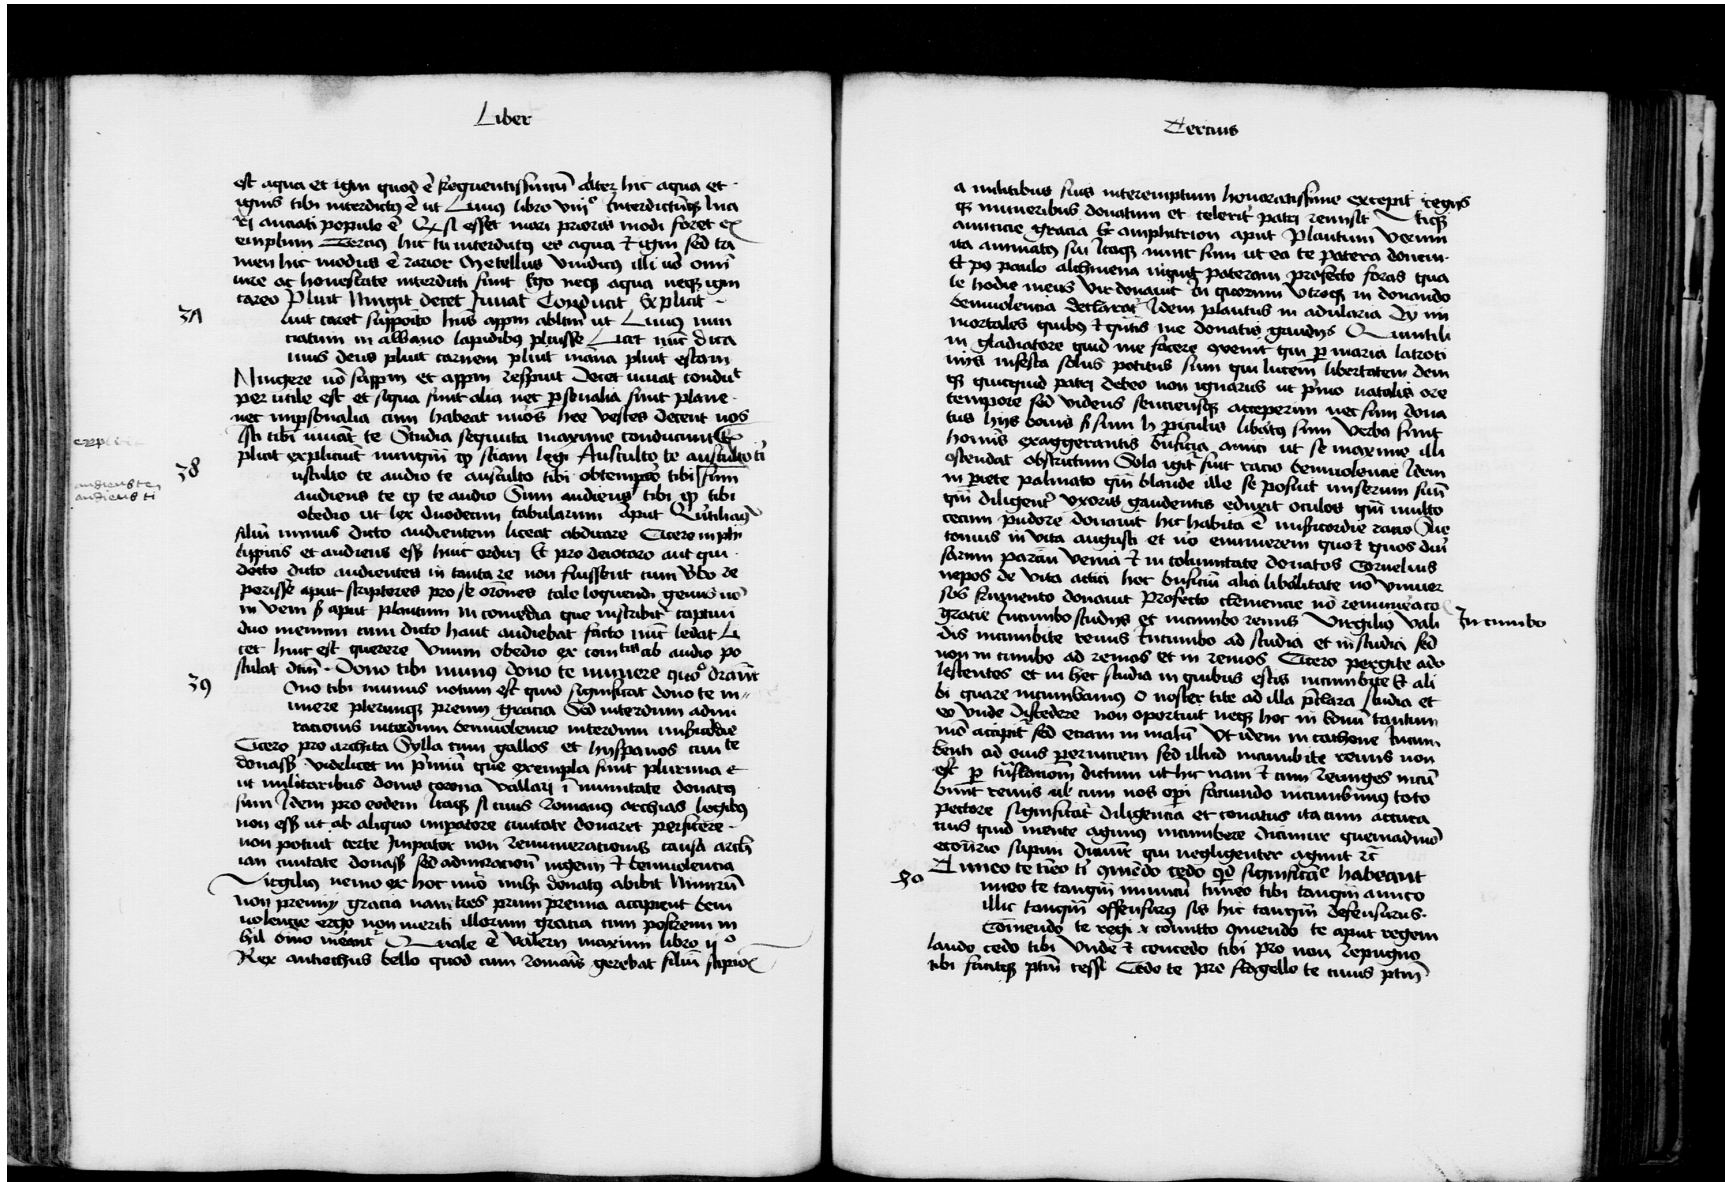 Liber
est aqua et igni quod ē frequentissimū Alter hic aqua et
ignis tibi interdictꝰ ē ut Liuiꝰ libro viijº Interdictūqꝫ
ri anciati populo ē Qͣ si esset mari prioris modi foret ex
emplum Tercius hic tu interdictꝰ es aqua et igni sed ta
men hic modus ē rarior Metellus vindicꝰ illi uō omī
iure ac honestate interdicti sunt Ergo neqꝫ aqua neqꝫ igni
careo Pluit Ningit decet Juuat Conducit Explicit
37
luit caret supposito hūs appm ablm̄ ut Liuiꝰ nun
ciatum in albano lapidibꝰ pluisse Licet nūc dica
mus deus pluit carnem pluit māna pluit escam
Ningere nō suppm et appm respuit Decet iuuat conduc̄
per utile est et siqua sunt alia nec p̱sonalia sunt plane
nec inp̱sonalia cum habeat nrōs hee vestes decent nos
Isti tibi iuuāt te Studia sequita maxime conducunt Ex
plicit explicuit nunqm̄ qp̄ sciam legi Ausculto te ausculto ti
38
usculto te audio te ausculto tibi obtempō tibi sum
audiens te
audiens ti
audiens te qp̄ te audio Sum audiens tibi qp̄ tibi
obedio ut lex duodecim tabularum aput Quītilianū
filiū minus dicto audientem liceat abdicare Cicero in phi
lippicis et audiens essꝫ huic ordini Et pro deiotaro aut qui
dicto dicto audientes in tanta re non fuissent cum vbo re
perisse aput scriptores pro se orōnes tale loquendi genus nō
in veni sꝫ aput plautum in comedia que inscribit captiui
duo meum cum dicto haut audiebat facto nūc ledat Li
cet hinc est querere vnum obedio ex com ab audio po
stulat dtm̄ Dono tibi munꝰ dono te munere quō drāūt
39
Ono tibi munus notum est quid significat dono te m
unere plerunqꝫ premij gracia Sed interdum admi
racionis interdum beniuolencie interdum misericordie
Cicero pro archita Sylla cum gallos et hyspanos ciuite
donassꝫ videlicet in premiū que exempla sunt plurima et
ut militaribus donis corona vallari ī munitate donatꝰ
sum Idem pro eodem Itaqꝫ si ciuis romanus archias legibꝰ
non essꝫ ut ab aliquo impatore ciuitate donaret perficere
non potuit certe Jmpator non remuneracionis causa arch
iam ciuitate donassꝫ sed admiracionē ingenij et beniuolencia
Virgiliꝰ nemo ex hoc nūō mihi donatꝰ abibit Nimirū
non premij gracia nam tres prim premia accipient beni
uolencie ergo non meriti illorum gracia cum postremi ni
hil oīno meānt Quale ē valerij maximi libro ijº
Rex antiochus bello quod cum romaīs gerebat filiū scipiōīs
Tercius
a militibus suis interemptum honoratissime excepit regijs
qꝫ muneribus donatum et celerit patri remisit
amicicie gracia Et amphitrion aput Plautum verum
ita animatꝰ sui Itaqꝫ nunc sum ut ea te patera donem
Et pō paulo alchmena inquit pateram profecto foras qua
le hodie meus vir donauit In quorum vtroqꝫ in donando
beniuolencia declarat Idem plautus in adularia Dij im
mortales quibꝰ et quītis me donatis gaudijs Quintili
in gladiatore quid me facere ꝯuenit qui p̱ maria latroci
nijs infesta solus potitus sum qui lucem libertatem dem
qꝫ quicquid patri debeo non ignarus ut primo natalis ore
tempore sed videns senciensqꝫ acceperim nec sum dona
tus hijs bonis si sum hijs p̱iculis libatꝰ sum Verba sunt
homīs exaggerantis bn̄ficia amici ut se maxime illi
ostendat obstrictum Sola igit sint racio beniuolencie Idem
in p̱iete palmato qm̄ blande ille se posuit miserum suū
qm̄ diligent vxoris gaudentis eduxit oculos qm̄ multo
cecum pudore donauit hic habita ē misericordie racio Sue
tonius in vita augusti et nō enumerem quot et quos diū
sarum parciū venia et in columitate donatos Cornelius
nepos de vita actici hoc bn̄ficiū alia libalitate nō vniuer
sos frumento donauit Profecto clemencie nō remuneracō
gracie Incumbo studijs et incumbo remis Virgiliꝰ vali
In cumbo
dis incumbite remis Incumbo ad studia et in studia sed
non in cumbo ad remos et in remos Cicero pergite ado
lescentes et in hec studia in quibus estis incumbite Et ali
bi quare incumbamꝰ o noster tite ad illa p̄clara studia et
eo vnde discedere non oportuit neqꝫ hoc in bonū tantum
mō accipit sed etiam in malū Vt idem in cathone Incum
benti ad eius perniciem sed illud incumbite remis non
est p̱ tn̄slacionem dictum ut hic nam et cum remiges incū
bunt remis uł cum nos opi faciundo incumbimꝰ toto
pectore significat diligencia et conatus ita cum accura
cius quid mente agimꝰ incumbere dicimur quemadmō
ecōtrario supini dicunt qui negligenter agunt
Timeo te tīeo ti ꝯmēdo cedo qd significatōē habeant
40
imeo te tanqm̄ inimicū timeo tibi tanqm̄ amico
illic tanqm̄ offensurꝰ sis hic tanqm̄ defensurus
Comendo te regi .i. comitto ꝯmendo te aput regem
laudo cedo tibi vnde et concedo tibi pro non repugno
tibi faciqꝫ ptm̄ cessi Cedo te pro flagello te cuius ptm̄